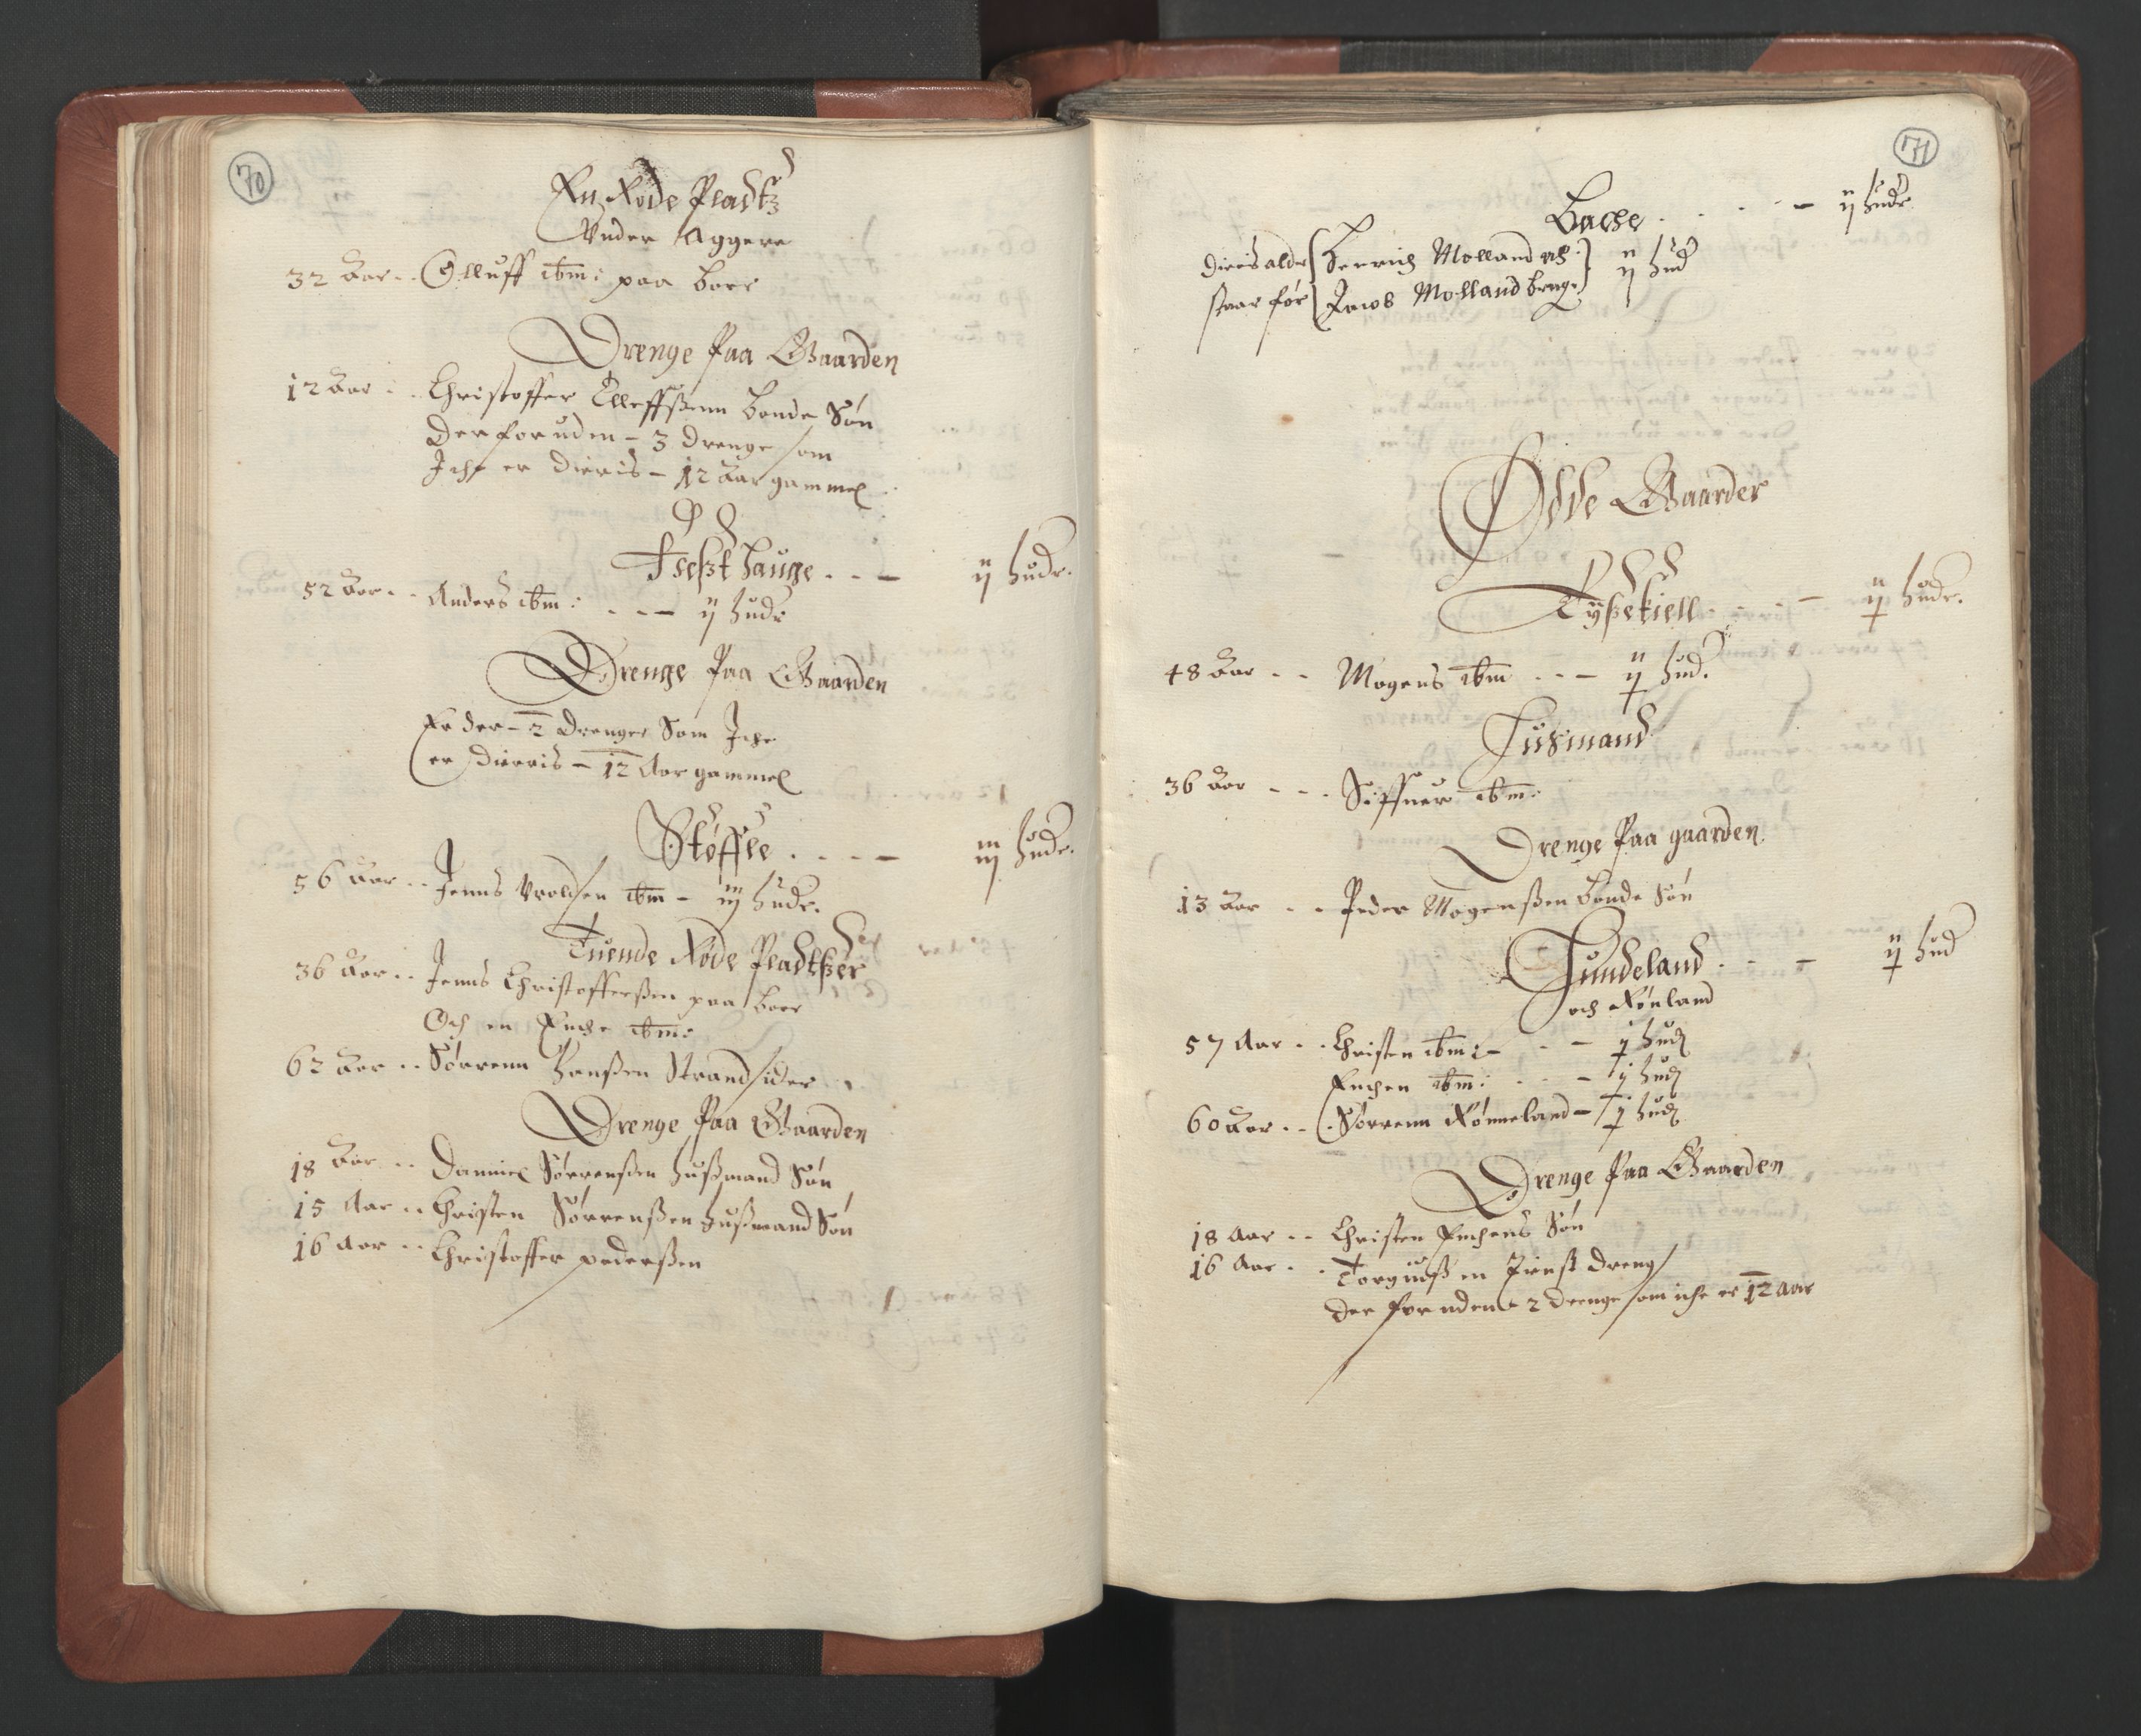 70
En Røde Pladtz
Vnder Aggere
32 Aar Olluff ibm: paa boer
Drenge Paa Gaarden
12 Aar Christoffer Elleffßenn bonde Søn
Der foruden - 3 drenge som
Iche er dieris - 12 Aar gammel
hauge - ij hudr.
52 Aar Anders ibm: - ij hudr
Drenge Paa Gaarden
Er der - 2 Drenge Som Iche
er dierris - 12 Aar gammel
Støffle - iij hudr.
56 Aar Jenns Vroldsen ibm - iij hudr.
Tuende Røde Pladtzer
36 Aar Jenns Christofferßen paa boer
Och en Enche ibm:
62 Aar Sørrenn Hanßen Strandsider
Drenge Paa Gaarden
18 Aar Danniel Sørrenßen hußmand Søn
15 Aar Christen Sørrenßen hußmand Søn
16 Aar Christoffer pederßen
71
Bache - ij hudr
Dieris alder Henrich Molland och
staar før Jacob Molland bruge ij hud
Øde Gaarder
Tyßekiell - ij hudr.
48 Aar Mogens ibm - ij hud.
Husmand
36 Aar Siffuer ibm:
Drenge Paa gaarden
13 Aar Peder Mogenßen bonde Søn
Sundeland - ij hud
och Rønland
57 Aar Christen ibm: - j hud
Enchen ibm: - j hud
60 Aar Sørrenn Rønneland - j hud
Drenge Paa Gaarden
18 Aar Christen Enchens Søn
16 Aar Torguß en dreng
Der foruden 2 drenge som iche er 12 aar